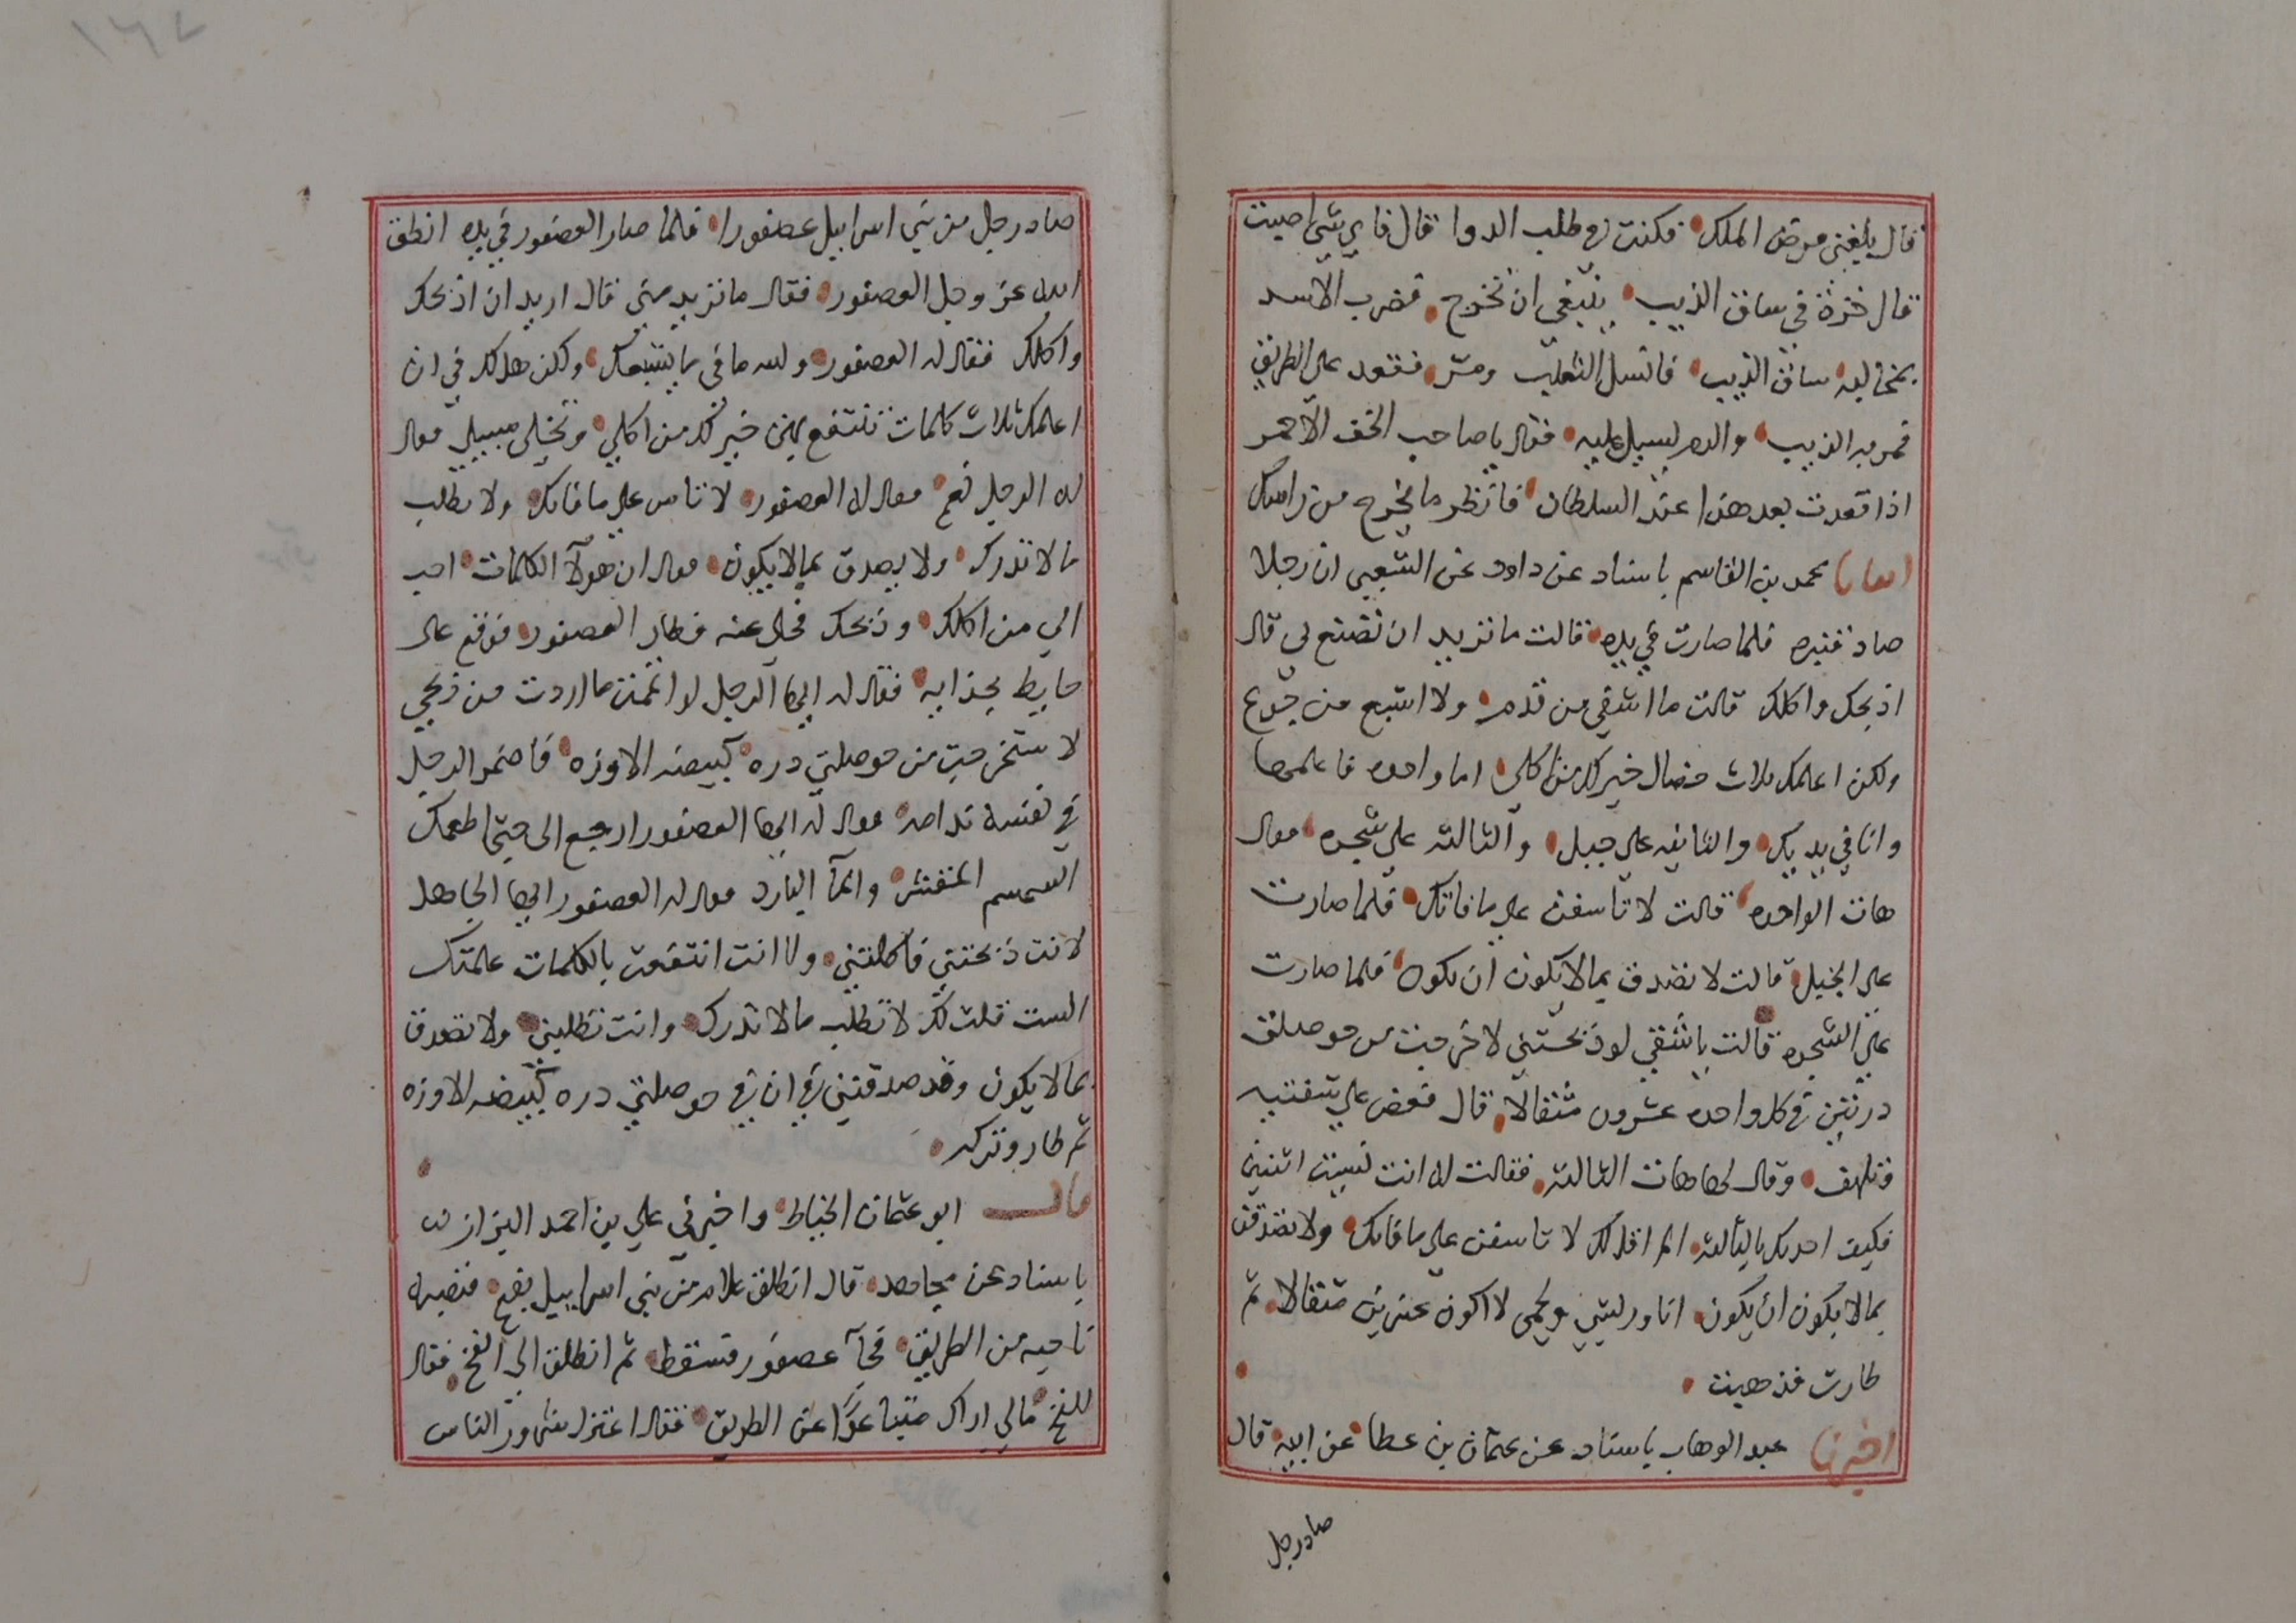 قال بلغني مرض الملك فكنت في طلب الدوا قال فاي شي اصبت
قال خرزة في ساق الذيب ينبغي ان تخرج فضرب الاسد
بمخاليبه ساق الذيب فانسل الثعلب ومر فقعد على الطريق
فمر به الذيب والدم يسيل عليه فقال يا صاحب الخف الاحمر
اذا قعدت بعد هذا عند السلطان فانظر ما يخرج من راسك
محمد بن القاسم باسناد عن داود عن الشعبي ان رجلا
صاد قنبره فلما صارت في يده قالت ما تريد ان تصنع بي قال
اذبحك واكلك قالت ما اشفي من قدم ولا اشبع من جوع
ولكن اعلمك ثلاث خصال خير لك من اكلي اما واحده فاعلمها
وانا في يديك والثانيه علي جبل والثالثه علي شجره فقال
هات الواحده قالت لا تاسفن علي ما فاتك فلما صارت
علي الجبل قالت لا تصدق بما لا يكون ان يكون فلما صارت
علي الشجره قالت يا شقي لو ذبحتني لاخرجت من حوصلتي
درتين في كل واحده عشرون مثقالا قال فعض علي شفتيه
وتلهف وقال لها هات الثالثه فقالت له انت نسيت اثنين
فكيف احدثك بالثالثه الم اقل لك لا تاسفن علي ما فاتك ولا تصدقن
بما لا يكون ان يكون انا وريشي ولحمي لا اكون عشرين مثقالا ثم
طارت فذهبت
اخبرنا عبد الوهاب باسناد عن عثمان بن عطا عن ابيه قال
صاد رجل
١٦٧
صاد رجل من بني اسراييل عصفورا فلما صار العصفور في يده انطق
الله عز وجل العصفور فقال ما تريد مني قال اريد ان اذبحك
واكلك فقال له العصفور والله ما في ما يشبعك ولكن هل لك في ان
اعلمك ثلاث كلمات تنتفع بهن خير لك من اكلي وتخلي سبيلي فقال
له الرجل نعم فقال له العصفور لا تاس علي ما فاتك ولا تطلب
ما لا تدرك ولا تصدق بما لا يكون فقال ان هولآ الكلمات احب
الي من اكلك وذبحك فخلي عنه فطار العصفور فوقع على
حايط بحذايه فقال له ايها الرجل لو اتممت ما اردت من ذبحي
لاستخرجت من حوصلتي دره كبيضه الاوزه فاضمر الرجل
في نفسه ندامه فقال له ايها العصفور ارجع الى حتى اطعمك
السمسم المقشر والمآ البارد فقال له العصفور ايها الجاهل
لا انت ذبحتني فاكلتني ولا انت انتفعت بالكلمات علمتك
الست قلت لك لا تطلب ما لا تدرك وانت تطلبني ولا تصدق
بما لا يكون وقد صدقتني في ان في حوصلتي دره كبيضه الاوزه
ثم طار وتركه
قال ابو عثمان الخياط واخبرني علي بن احمد البزاز
باسناد عن مجاهد قال انطلق غلام من بني اسراييل بفخ فنصبه
ناحيه من الطريق فجآ عصفور فسقط ثم انطلق الى الفخ فقال
للفخ مالي اراك متباعدا عن الطريق فقال اعتزل شرور الناس